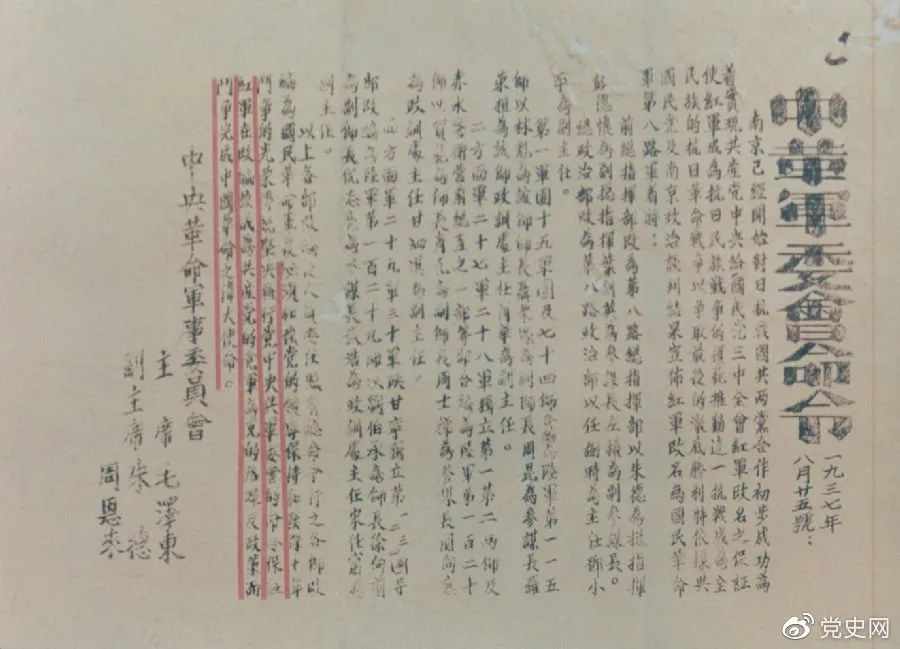 中革軍委會命令
一九三七年
八月廿五號：
南京已經開始對日抗戰國共兩黨合作初步成功為
着實現共産党中央給國民党三中全會紅軍改名之保証
使紅軍成為抗日民族戰争的模範推動這一抗戰成為全
民族的抗日革命戰争以争取最後的澈底勝利特依據共
國民党及南京政治談判結果宣佈紅軍改名為國民革命
軍第八路軍着將：
前總指揮部改為第八路總指揮部以朱德為總指揮
彭德懷為副總指揮葉劍英為參謀長左權為副參謀長。
總政治部改為第八路政治部以任弼時為主任鄧小
平為副主任。
第一軍團十五軍團及七十四師合編為陸軍第一一五
師以林彪為該師師長聶榮臻為副師長周昆為參謀長羅
榮桓為該師政訓處主任蕭華為副主任。
二方面軍二十七軍二十八軍獨立第一第二兩師及
赤水警衛營前總直之一部等部合編為陸軍第一百二十
師以賀龍為師長蕭克為副師長周士第為參謀長關向應
為政訓處主任甘泗淇為副主任。
四方面軍二十九軍三十軍陝甘寧獨立第一二三四等
部改編為陸軍第一百二十九師以劉伯承為師長徐向前
為副師長倪志亮為參謀長張浩為政訓處主任宋任窮為
副主任。
以上各部改編後人員委任照前總命令行之各部改
編為國民革命軍後必須加强党的領導保持和發揮十年
鬥争的光榮傳統堅决執行党中央與軍委會的命令保証
紅軍在改編後成為共産党的党軍為党的路線及政策而
鬥争完成中國革命之偉大使命。
中央革命軍事委員會
主席毛澤東
副主席朱德
周恩来
党史网